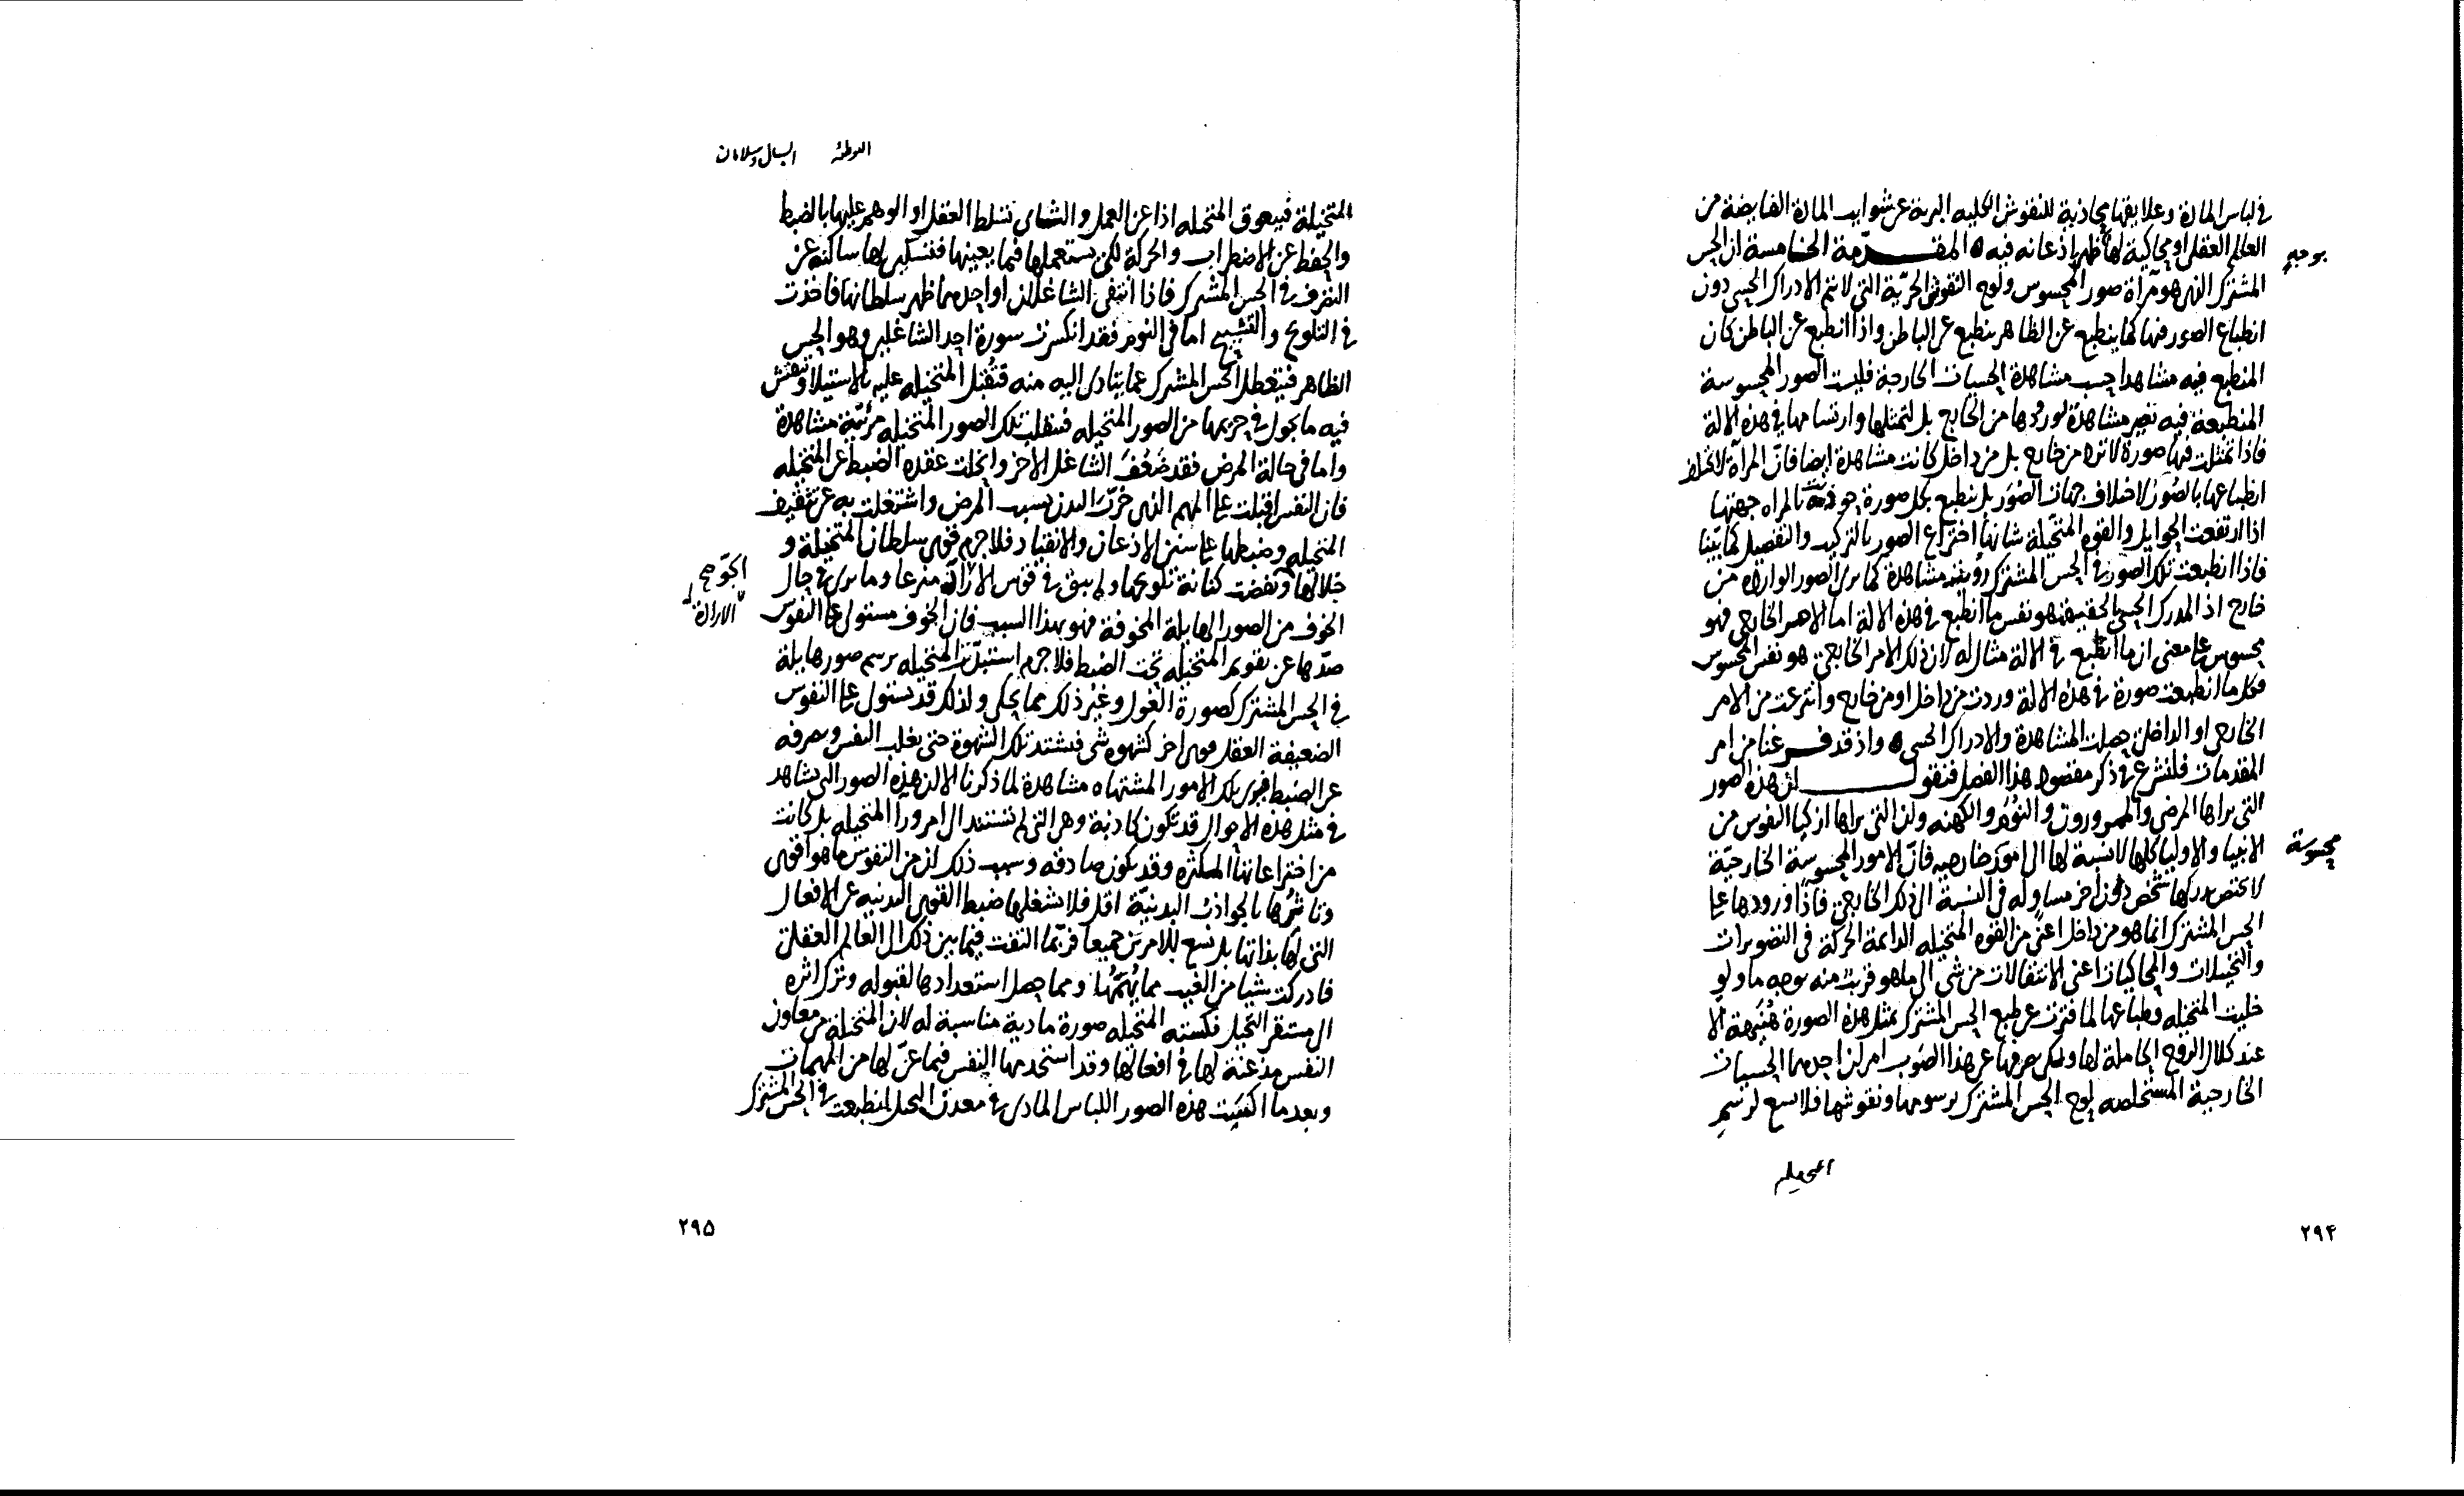 في لباس المادة وعلايقها مجاذبة للنقوش الكلية البرية عن شوايب المادة الفايضة من
العالم العقلي او محاكية لها ظهر اذعانه فيه ٥ المقدمة الخامسة ان الحس
بوجه
المشترك الذي هو مرآة صور المحسوس ولوح النقوش الجزئية التي لا يتم الادراك الحسي دون
انطباع الصور فيها كما ينطبع عن الظاهر ينطبع عن الباطن واذا انطبع عن الباطن كان
المنطبع فيه مشاهدا حسب مشاهدة الحسيات الخارجة فليست الصور المحسوسة
المنطبعة فيه تصير مشاهدة لورودها من الخارج بل لتمثلها وارتسامها في هذه الالة
فاذا تمثلت فيها صورة لا ترد من خارج بل من داخل كانت مشاهدة ايضا فان المرآة لا تختلف
انطباعها بالصور لاختلاف جهات الصور بل ينطبع بكل صورة حوذي بالمراه جهتها
اذا ارتفعت الحوايل والقوه المتخيلة شانها اختراع الصور بالتركيب والتفصيل كما بينا
فاذا انطبعت تلك الصور في الحس المشترك رؤيت مشاهدة كما يرى الصور الوارده من
خارج اذ المدرك الحسي بالحقيقة هو نفس ما انطبع في هذه الالة اما الامر الخارجي فهو
محسوس على معنى ان ما انطبع في الالة مثال له لان ذلك الامر الخارجي هو نفس المحسوس
فكل ما انطبعت صورة في هذه الالة وردت من داخل او من خارج وانتزعت من الامر
الخارجي او الداخلي حصلت المشاهدة والادراك الحسي ٥ واذ قد فرغنا من امر
المقدمات فلنشرع في ذكر مقصود هذا الفصل فنقول ان هذه الصور
التي يراها المرضى والممرورون والنوم والكهنه وان التي يراها ازكيا النفوس من
الانبيا والاوليا كلها لا نسبة لها الى امور خارجيه فان الامور المحسوسة الخارجية
محسوسة
لا يختص بدركها شخص دون اخر مساو له في النسبة الى ذلك الخارجي فاذا ورودها على
الحس المشترك انما هو من داخل اعني من القوه المتخيله الدائمة الحركة في التصويرات
والتخيلات والمحاكيات اعني الانتقالات من شي الى ما هو قريب منه بوجه ما ولو
خليت المتخيله وطباعها لما فترت عن طبع الحس المشترك بمثل هذه الصورة هنيهة الا
عند كلال الروح الحاملة لها ولكن يصرفها عن هذا الصوب امران احدهما الحسيات
الخارجية المستخلصه لوح الحس المشترك برسومها ونقوشها فلا تسع لرسم
المتخيلة
٢٩۴
التوطئه ابسال وسلامان
المتخيلة فيعوق المتخيله اذا عن العمل والثاني تسلط العقل او الوهم عليها بالضبط
والحفظ عن الاضطراب والحركة لكي يستعملها فيما يعينها فتسكن لها ساكنه عن
التصرف في الحس المشترك فاذا انتفى الشاغلان او احدهما ظهر سلطانها فاخذت
في التلويح والتشبيح اما في النوم فقد انكسرت سورة احد الشاغلين وهو الحس
الظاهر فيتعطل الحس المشترك عما يتادى اليه منه فتقبل المتخيله عليه بالاستيلا وتنقش
فيه ما يجول في حزبها من الصور المتخيله فتنقلب تلك الصور المتخيله مرئية مشاهدة
واما في حالة المرض فقد ضعف الشاغل الاخر وانحلت عقدة الضبط عن المتخيله
فان النفس اقبلت على المهم الذي حزب البدن بسبب المرض واشتغلت به عن تثقيف
المتخيله وضبطها على سنن الاذعان والانقياد فلا جرم قوي سلطان المتخيلة و
خلا لها ونفضت كنانة تلويحها ولم يبق في قوس الارادة منزعا وما يرى في حال
الجو
الارادة
الخوف من الصور الهايلة المخوفة فهو بهذا السبب فان الخوف مستول على النفوس
صدها عن تقويم المتخيله تحت الضبط فلا جرم استبدت المتخيله برسم صور هايلة
في الحس المشترك كصورة الغول وغير ذلك مما يحكى ولذلك قد يستولي على النفوس
الضعيفة العقل قوى اخر كشهوه شي فتشتد تلك الشهوة حتى يغلب النفس ويصرفه
عن الضبط فيرى تلك الامور المشتهاه مشاهدة لما ذكرنا الا ان هذه الصور التي تشاهد
في مثل هذه الاحوال قد تكون كاذبة وهي التي لم تستند الى امر ورا المتخيله بل كانت
من اختراعاتها المنكره وقد يكون صادقه وسبب ذلك ان من النفوس ما هو اقوى
وتاثرها بالجواذب البدنية اقل فلا يشغلها ضبط القوى البدنيه عن الافعال
التي لها بذاتها بل تسع للامرين جميعا فربما التفت فيما بين ذلك الى العالم العقلي
فادركت شيا من الغيب مما يهمها ومما حصل استعدادها لقبوله وترك اثره
الى مستقر التخيل فكسته المتخيله صورة مادية مناسبة له لان المتخيلة من معاون
النفس مذعنة لها في افعالها وقد استخدمها النفس فيما عن لها من المهمات
وبعد ما اكتسيت هذه الصور اللباس المادي في معدن التخيل انطبعت في الحس المشترك
٢٩۵